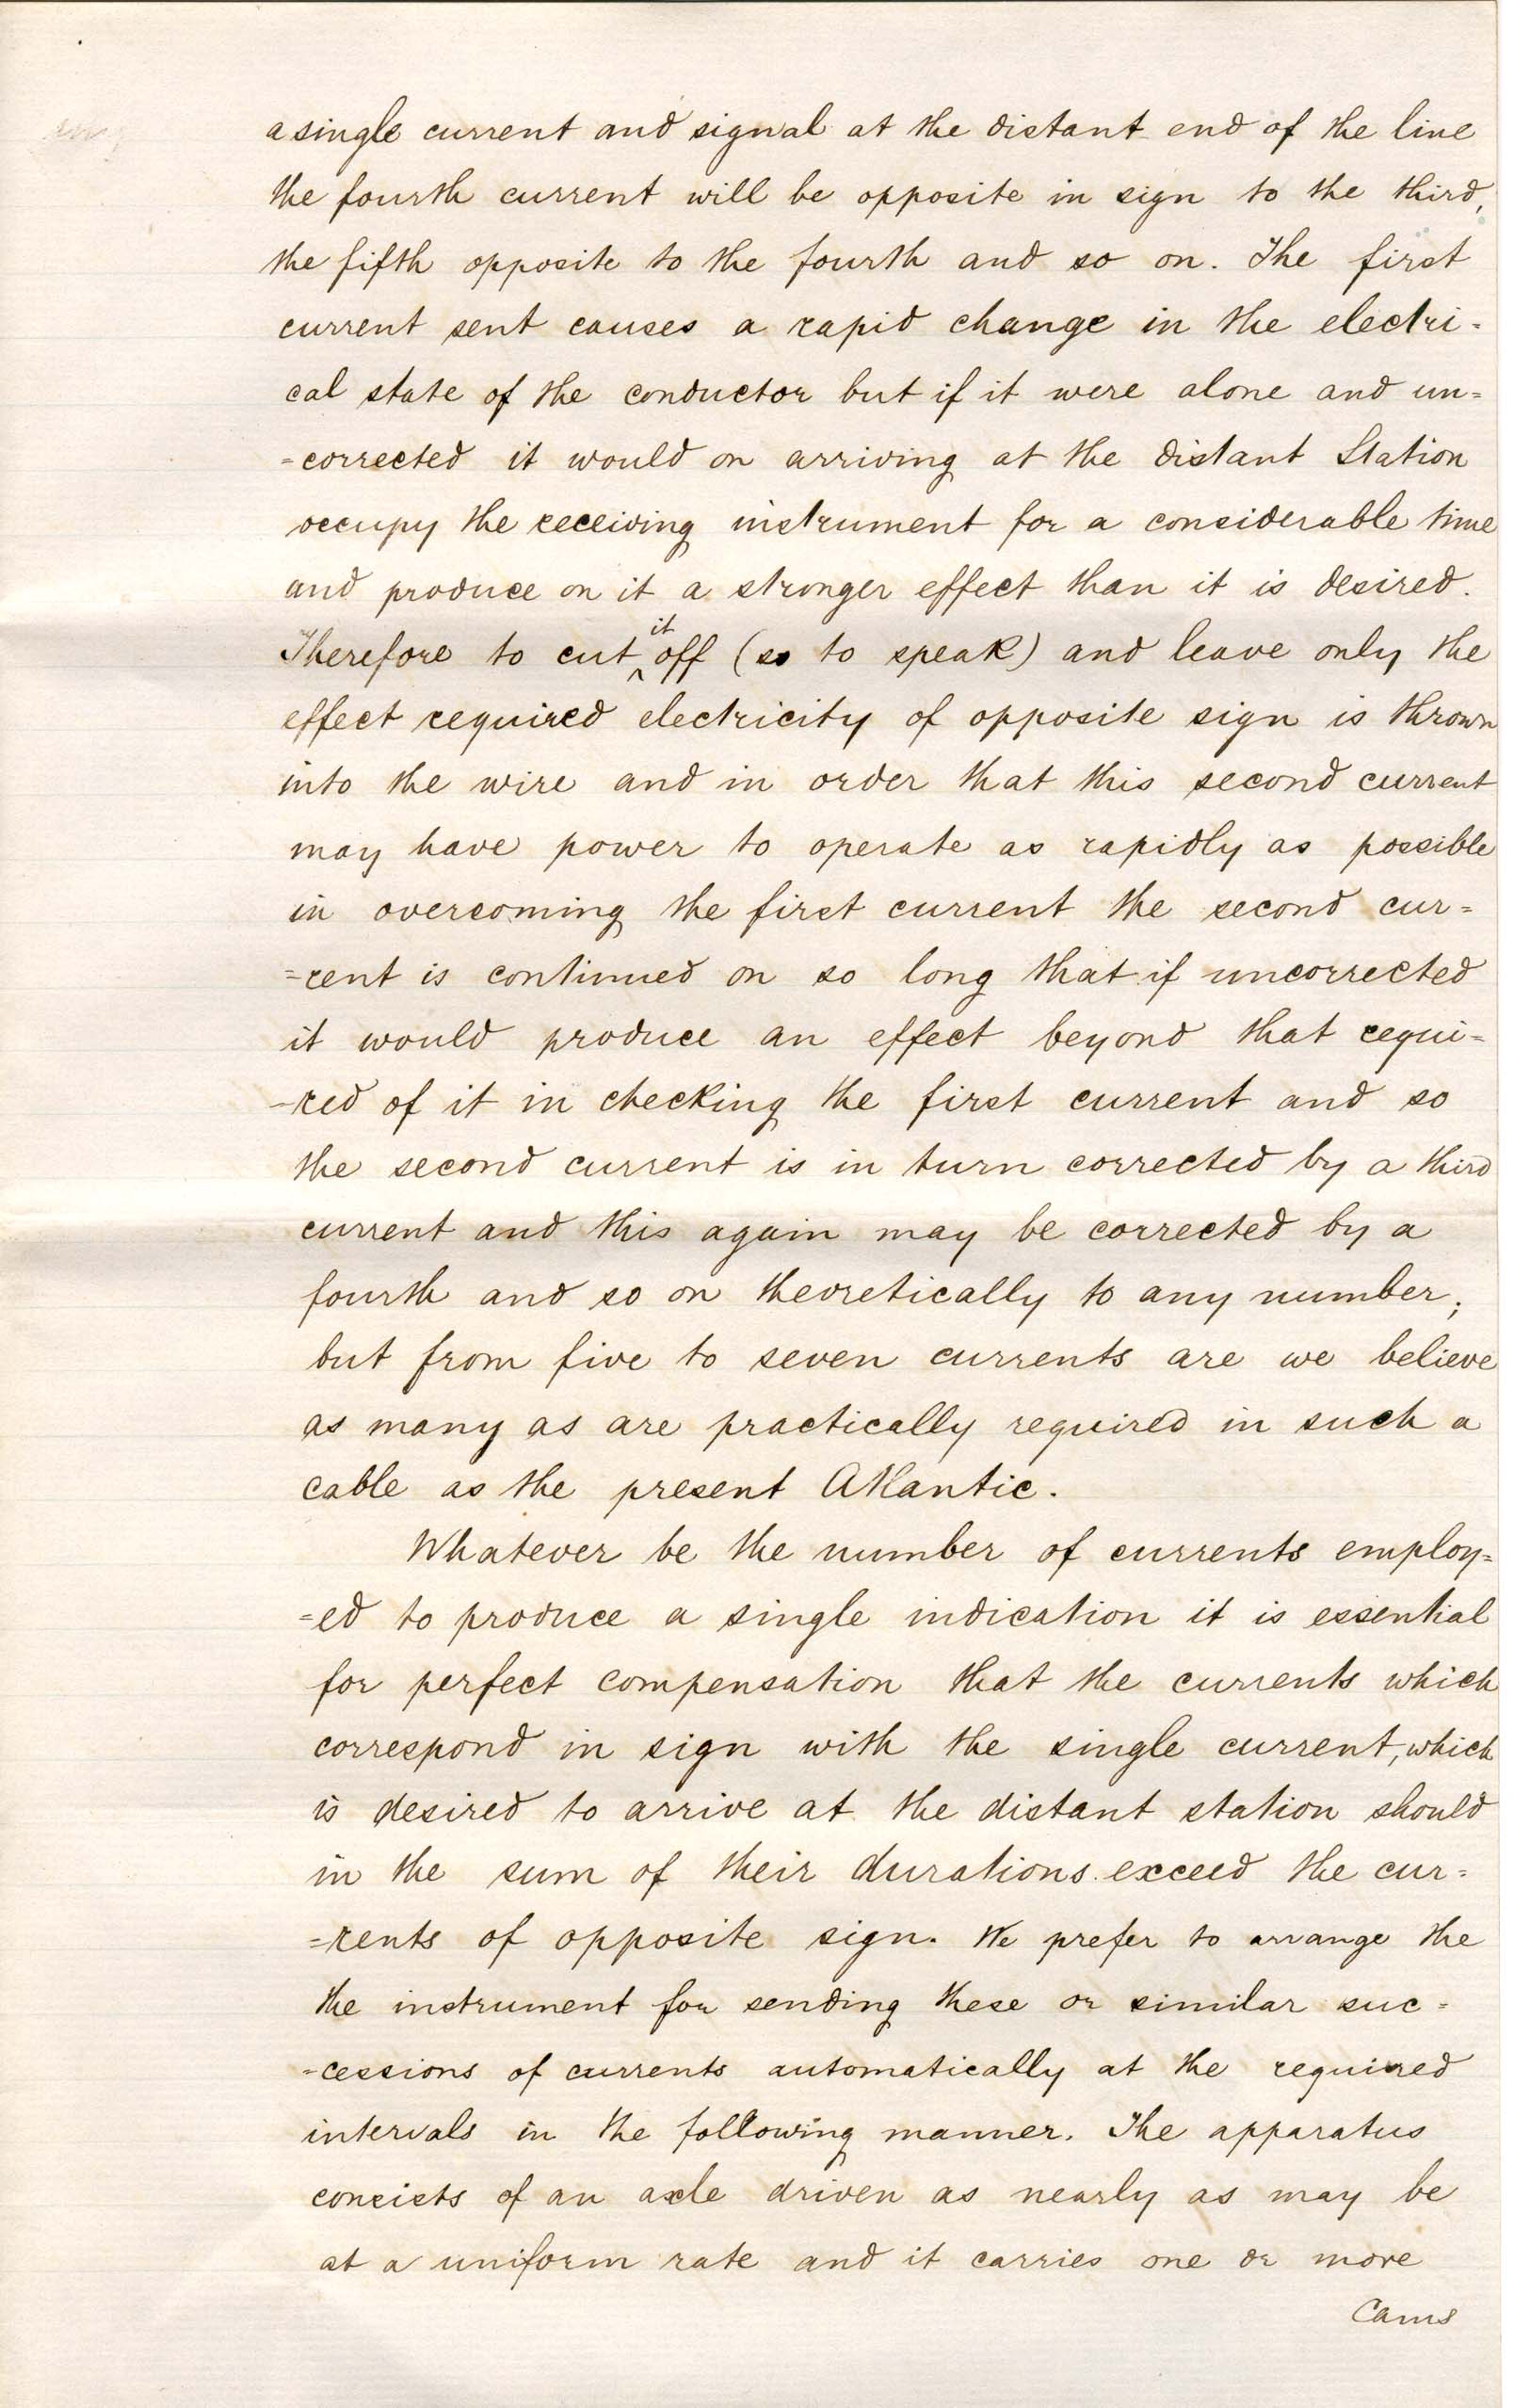 a single current and signal at the distant end of the line
the fourth current will be opposite in sign to the third,
the fifth opposite to the fourth and so on. The first
current sent causes a rapid change in the electri=
cal state of the conductor but if it were alone and un=
=corrected it would on arriving at the distant Station
occupy the receiving instrument for a considerable time
and produce on it a stronger effect than it is desired.
Therefore to cut it off (so to speak) and leave only the
effect required electricity of opposite sign is thrown
into the wire and in order that this second current
may have power to operate as rapidly as possible
in overcoming the first current the second cur=
=rent is continued on so long that if uncorrected
it would produce an effect beyond that requi=
-red of it in checking the first current and so
the second current is in turn corrected by a third
current and this again may be corrected by a
fourth and so on theoretically to any number;
but from five to seven currents are we believe
as many as are practically required in such a
cable as the present Atlantic.
Whatever be the number of currents employ=
=ed to produce a single indication it is essential
for perfect compensation that the currents which
correspond in sign with the single current, which
is desired to arrive at the distant station should
in the sum of their durations exceed the cur=
=rents of opposite sign. We prefer to arrange the
the instrument for sending these or similar suc=
=cessions of currents automatically at the required
intervals in the following manner. The apparatus
consists of an axle driven as nearly as may be
at a uniform rate and it carries one or more
Cams